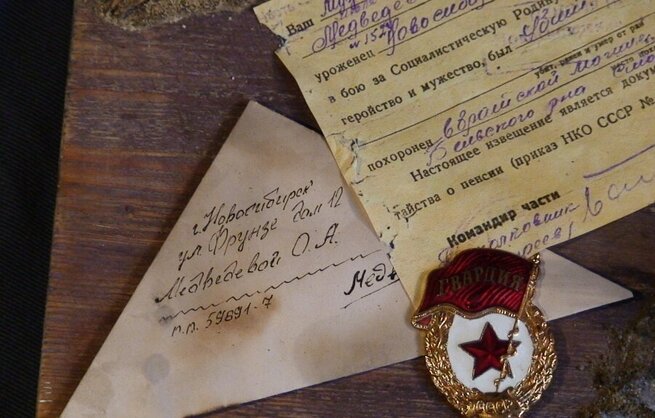 Ваш
Медведе
уроженец Новосибир
в бою за Социалистическую Родину
геройство и мужество, был
убит, ранен и умер от ран
похоронен
Бельского р-на Смо
Настоящее извещение является докуме
тайства о пенсии (приказ НКО СССР №
Командир части
г. Новосибирск
ул. Фрунзе дом 12
Медведевой О. А.
п.п. 59691-7
Мед
ГВАРДИЯ